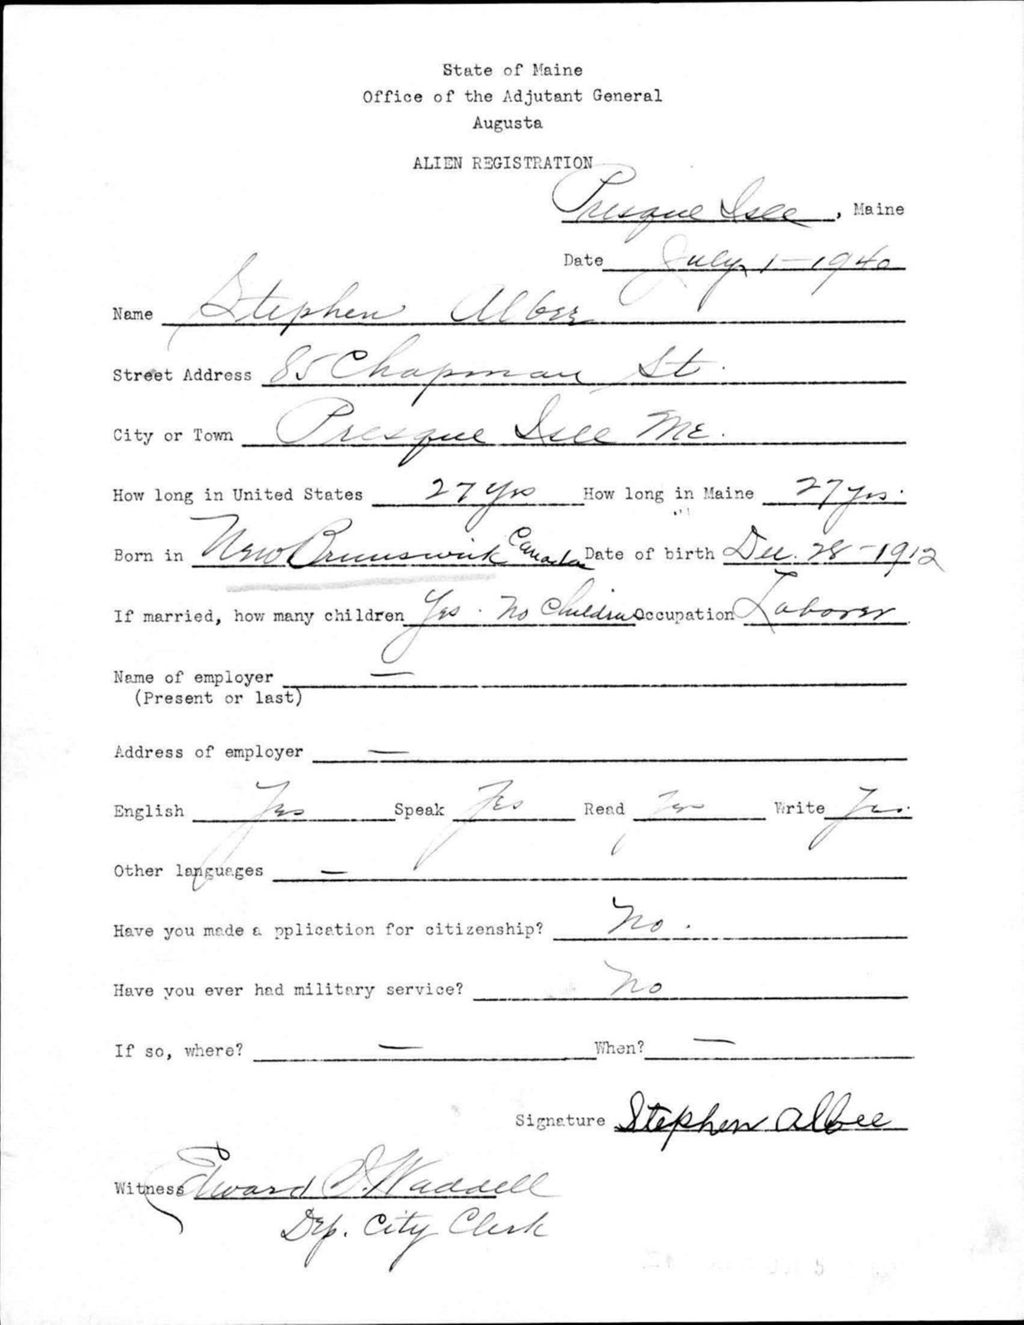 State of Maine
Office of the Adjutant General
Augusta
ALIEN REGISTRATION
Presque Isle, Maine
Date July 1-1940
Name Stephen Albee
Street Address 85 Chapman St.
City or Town Presque Isle Me.
How long in United States 27 yrs How long in Maine 27 yrs.
Born in New Brunswick Canada Date of birth Dec. 28-1912
If married, how many children Yes. No Children Occupation Laborer
Name of employer —
(Present or last)
Address of employer —
English Yes Speak Yes Read Yes Write Yes.
Other languages —
Have you made a pplication for citizenship? No.
Have you ever had military service? No
If so, where? — When? —
Signature Stephen Albee
Witness Edward D. Waddell
Dep. City Clerk